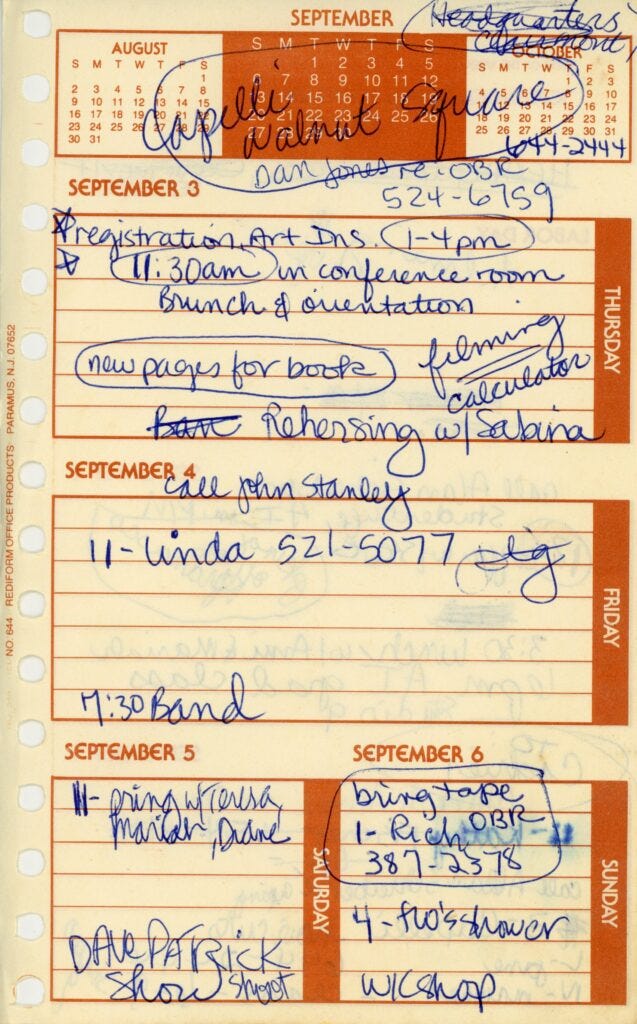 SEPTEMBER
Headquarters
Claremont,
AUGUST
S M T W T F S
1
2 3 4 5 6 7 8
9 10 11 12 13 14 15
16 17 18 19 20 21 22
23 24 25 26 27 28 29
30 31
S M T W T F S
1 2 3 4 5
6 7 8 9 10 11 12
13 14 15 16 17 18 19
20 21 22 23 24 25 26
27 28 29 30
OCTOBER
S M T W T F S
1 2 3
4 5 6 7 8 9 10
11 12 13 14 15 16 17
18 19 20 21 22 23 24
25 26 27 28 29 30 31
Capelli
Walnut Square
644-2444
Dan Jones re: OBR
524-6759
SEPTEMBER 3
registration, Art Ins. 1-4pm
11:30am in conference room
Brunch & orientation
new pages for book
filming
calculator
Rehersing w/ Sabina
THURSDAY
SEPTEMBER 4
call John Stanley
11- Linda 521-5077
7:30 Band
FRIDAY
SEPTEMBER 5
11- w/ Teresa,
Mariah, Diane
DAVE PATRICK
Show shoot
SATURDAY
SEPTEMBER 6
bring tape
1- Rich OBR
387-2378
4- Flo's shower
WKShop
SUNDAY
NO. 644 REDIFORM OFFICE PRODUCTS PARAMUS, N.J. 07652